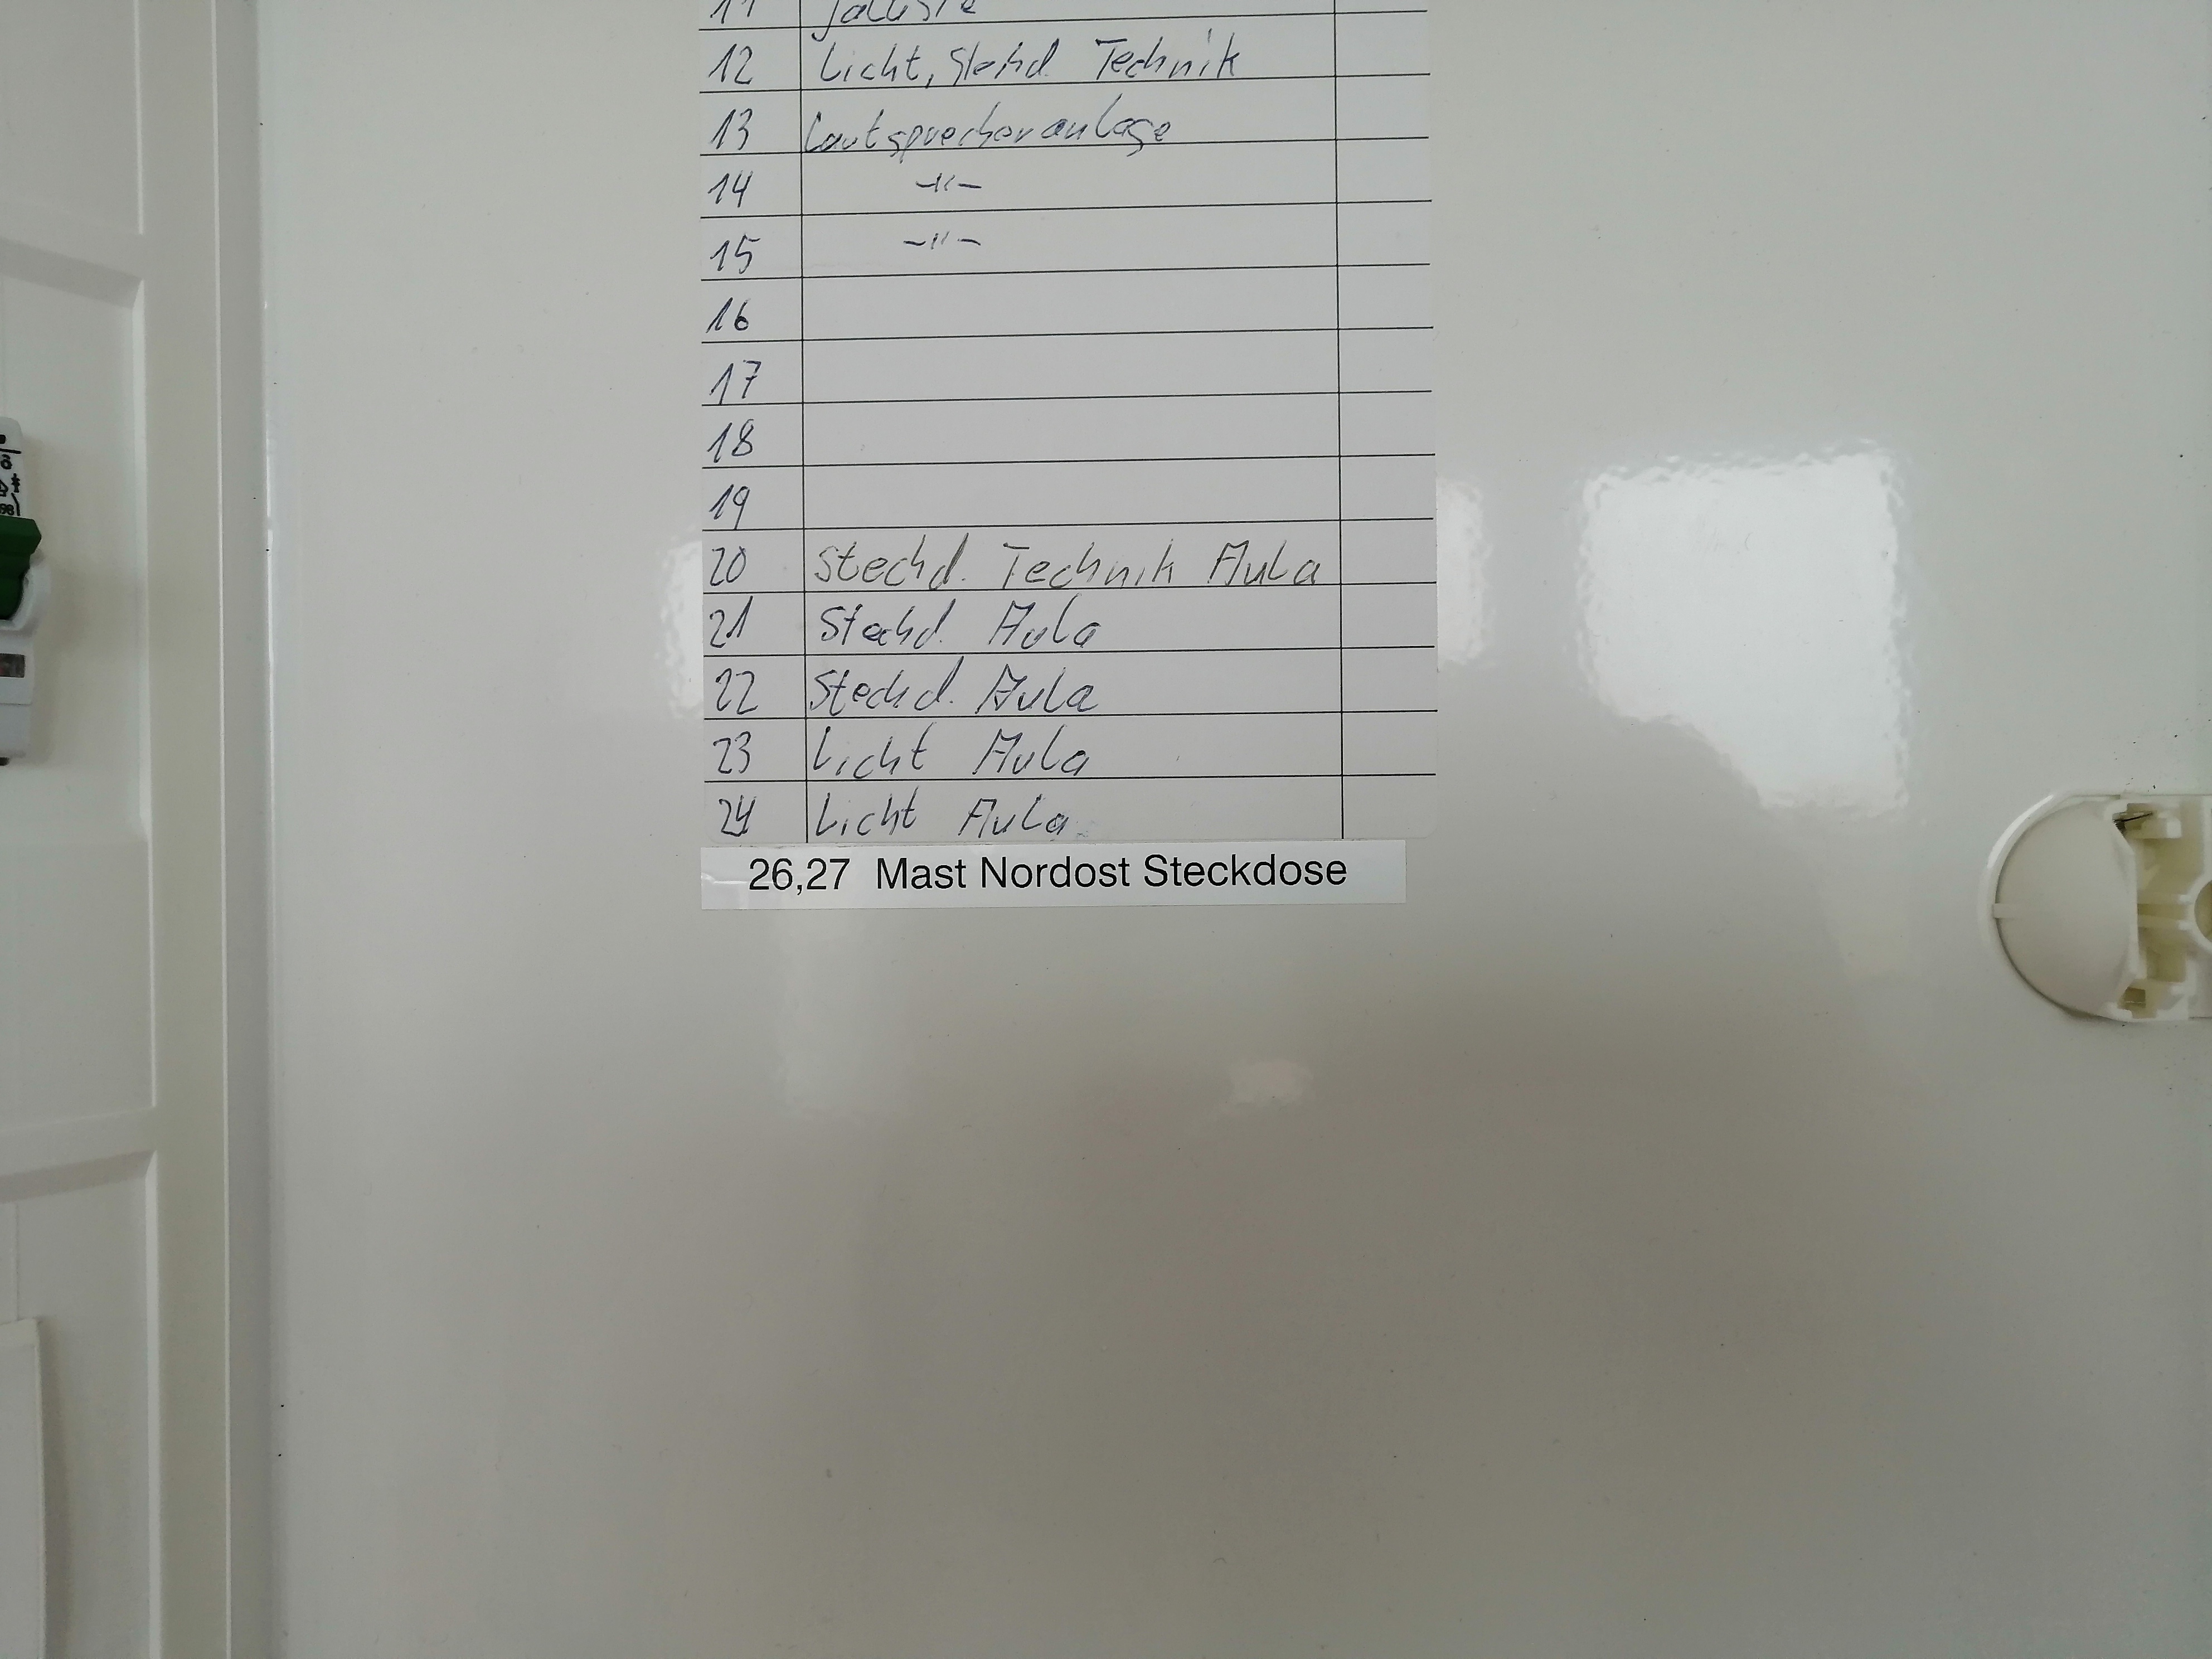 11 Jalusie
12 Licht, Steckd. Technik
13 Lautsprecheranlage
14 -"-
15 -"-
16
17
18
19
20 Steckd. Technik Aula
21 Steckd. Aula
22 Steckd. Aula
23 Licht Aula
24 Licht Aula
26,27 Mast Nordost Steckdose